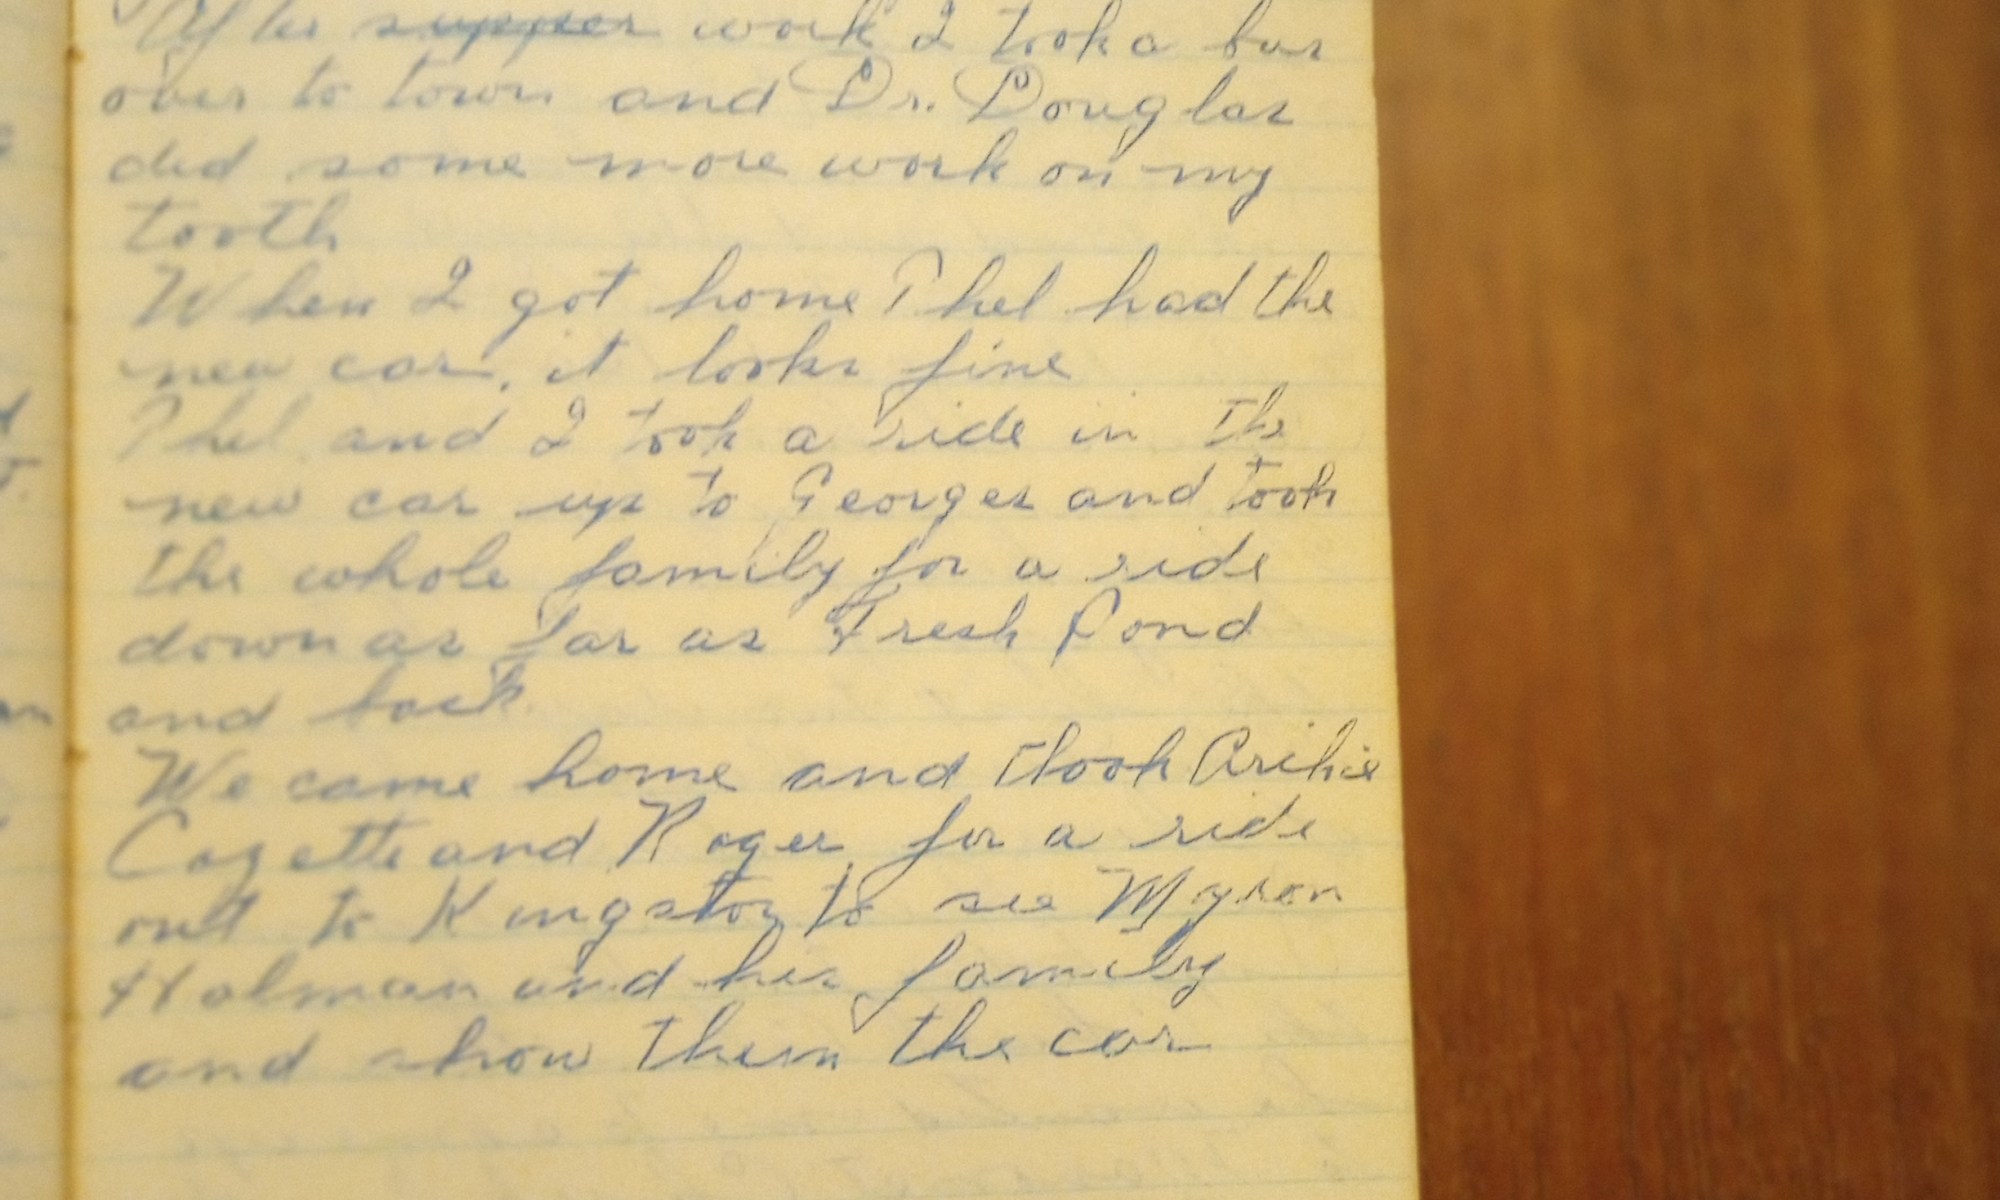 After supper work I took a bus
over to town and Dr. Douglas
did some more work on my
tooth
When I got home Phel had the
new car, it looks fine
Phel and I took a ride in the
new car up to Georges and took
the whole family for a ride
down as far as Fresh Pond
and back
We came home and thook Arihie
Cozette and Roger for a ride
out to Kingston to see Myron
Holman and his family
and show them the car